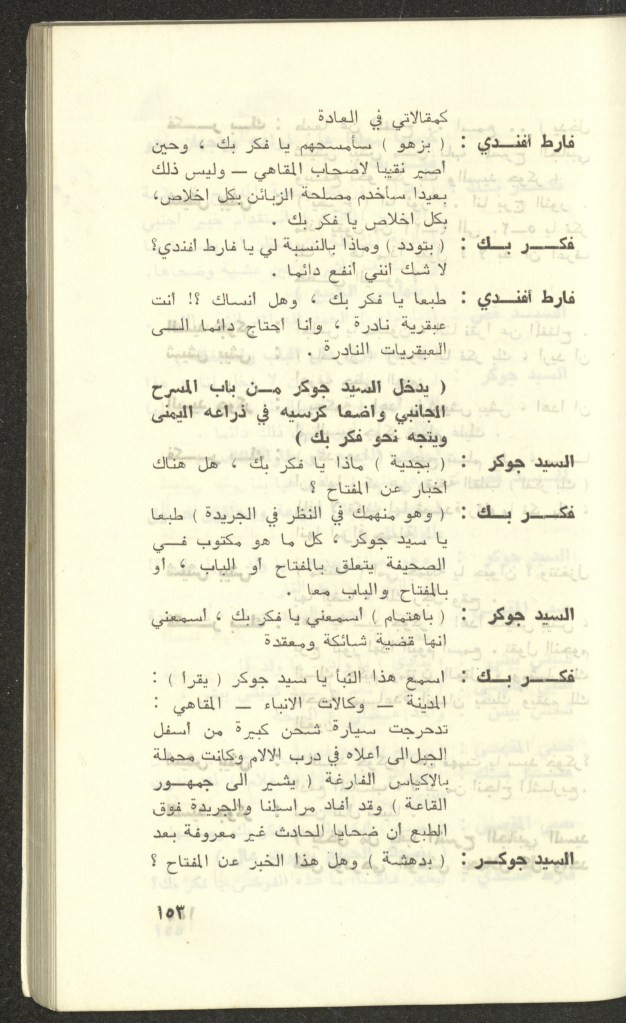 كمقالاتي في العادة
فارط أفندي : ( بزهو ) سأمسحهم يا فكر بك ، وحين
أصير نقيبا لاصحاب المقاهي — وليس ذلك
بعيدا سأخدم مصلحة الزبائن بكل اخلاص،
بكل اخلاص يا فكر بك .
فكـــر بــك : ( بتودد ) وماذا بالنسبة لي يا فارط افندي؟
لا شك انني أنفع دائما .
فارط أفندي : طبعا يا فكر بك ، وهل أنساك ؟! أنت
عبقرية نادرة ، وأنا احتاج دائما الـى
العبقريات النادرة .
( يدخل السيد جوكر مــن باب المسرح
الجانبي واضعا كرسيه في ذراعه اليمنى
ويتجه نحو فكر بك )
السيد جوكر : ( بجدية ) ماذا يا فكر بك ، هل هناك
اخبار عن المفتاح ؟
فكـــر بــك : ( وهو منهمك في النظر في الجريدة ) طبعا
يا سيد جوكر ، كل ما هو مكتوب فــي
الصحيفة يتعلق بالمفتاح أو الباب ، أو
بالمفتاح والباب معا .
السيد جوكر : ( باهتمام ) أسمعني يا فكر بك ، أسمعني
انها قضية شائكة ومعقدة
فكـــر بــك : اسمع هذا النبأ يا سيد جوكر ( يقرأ ) :
المدينة — وكالات الانباء — المقاهي :
تدحرجت سيارة شحن كبيرة من أسفل
الجبل الى أعلاه في درب الآلام وكانت محملة
بالاكياس الفارغة ( يشير الى جمهـــور
القاعة ) وقد أفاد مراسلنا والجريدة فوق
الطبع أن ضحايا الحادث غير معروفة بعد
السيد جوكــر : ( بدهشة ) وهل هذا الخبر عن المفتاح ؟
١٥٣